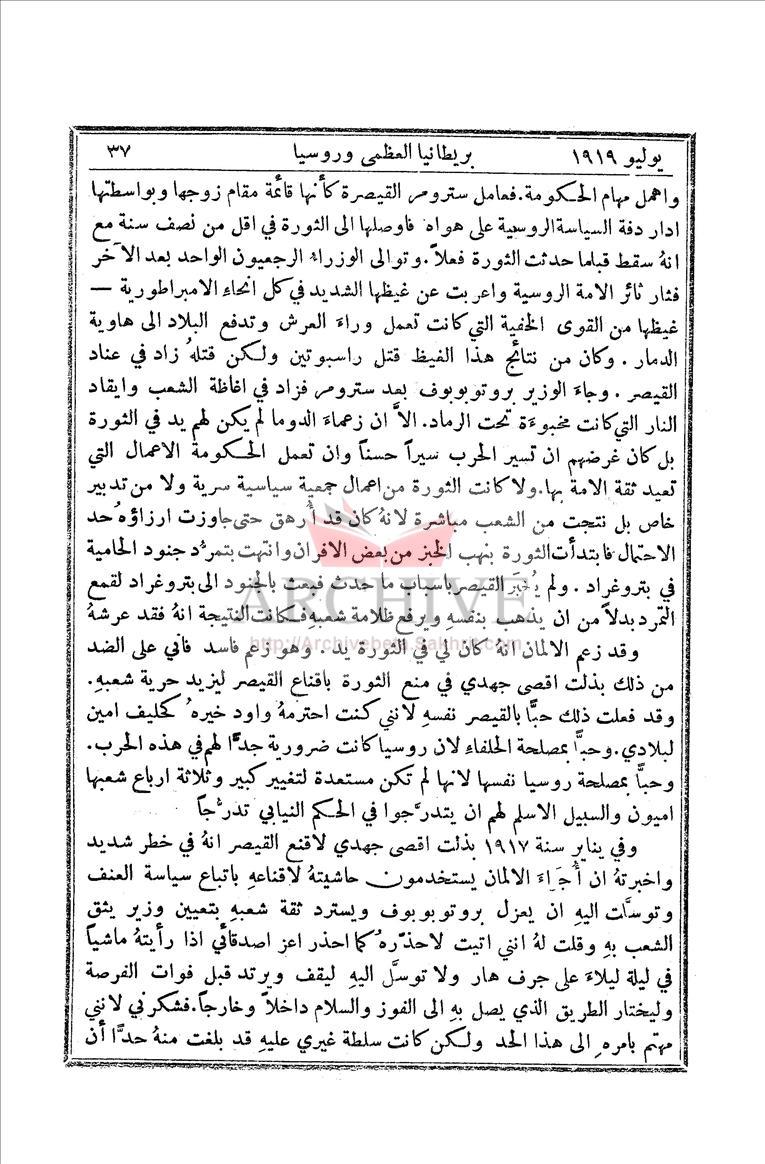 يوليو ١٩١٩ بريطانيا العظمى وروسيا ٣٧
واهمل مهام الحكومة. فعامل سترومر القيصرة كأنها قائمة مقام زوجها وبواسطتها
ادار دفة السياسة الروسية على هواه فاوصلها الى الثورة في اقل من نصف سنة مع
انهُ سقط قبلما حدثت الثورة فعلاً. وتوالى الوزراء الرجعيون الواحد بعد الآخر
فثار ثائر الامة الروسية واعربت عن غيظها الشديد في كل انحاء الامبراطورية —
غيظها من القوى الخفية التي كانت تعمل وراءَ العرش وتدفع البلاد الى هاوية
الدمار . وكان من نتائج هذا الغيظ قتل راسبوتين ولكن قتلهُ زاد في عناد
القيصر . وجاءَ الوزير بروتوبوبوف بعد سترومر فزاد في اغاظة الشعب وايقاد
النار التي كانت مخبوءَة تحت الرماد. الاَّ ان زعماءَ الدوما لم يكن لهم يد في الثورة
بل كان غرضهم ان تسير الحرب سيراً حسناً وان تعمل الحكومة الاعمال التي
تعيد ثقة الامة بها. ولا كانت الثورة من اعمال جمعية سياسية سرية ولا من تدبير
خاص بل نتجت من الشعب مباشرة لانهُ كان قد أُرهق حتى جاوزت ارزاؤهُ حد
الاحتمال فابتدأت الثورة بنهب الخبز من بعض الافران وانتهت بتمرُّد جنود الحامية
في بتروغراد . ولم يُخبر القيصر باسباب ما حدث فبعث بالجنود الى بتروغراد لقمع
التمرد بدلاً من ان يذهب بنفسهِ ويرفع ظلامة شعبهِ فكانت النتيجة انهُ فقد عرشهُ
وقد زعم الالمان انهُ كان لي في الثورة يد . وهو زعم فاسد فاني على الضد
من ذلك بذلت اقصى جهدي في منع الثورة باقناع القيصر ليزيد حرية شعبهِ.
وقد فعلت ذلك حبًّا بالقيصر نفسهِ لانني كنت احترمهُ واود خيرهُ كحليف امين
لبلادي. وحبًّا بمصلحة الحلفاء لان روسيا كانت ضرورية جدًّا لهم في هذه الحرب.
وحبًّا بمصلحة روسيا نفسها لانها لم تكن مستعدة لتغيير كبير وثلاثة ارباع شعبها
اميون والسبيل الاسلم لهم ان يتدرَّجوا في الحكم النيابي تدرُّجاً
وفي يناير سنة ١٩١٧ بذلت اقصى جهدي لاقنع القيصر انهُ في خطر شديد
واخبرتهُ ان أُجراءَ الالمان يستخدمون حاشيتهُ لاقناعهِ باتباع سياسة العنف
وتوسَّلت اليهِ ان يعزل بروتوبوبوف ويسترد ثقة شعبهِ بتعيين وزير يثق
الشعب بهِ وقلت لهُ انني اتيت لاحذّرهُ كما احذر اعز اصدقائي اذا رأيتهُ ماشياً
في ليلة ليلاءَ على جرف هار ولا توسل اليهِ ليقف ويرتد قبل فوات الفرصة
وليختار الطريق الذي يصل بهِ الى الفوز والسلام داخلاً وخارجاً. فشكرني لانني
مهتم بامرهِ الى هذا الحد ولكن كانت سلطة غيري عليهِ قد بلغت منهُ حدًّا أن
ARCHIVE
http://Archivebeta.Sakhrit.com